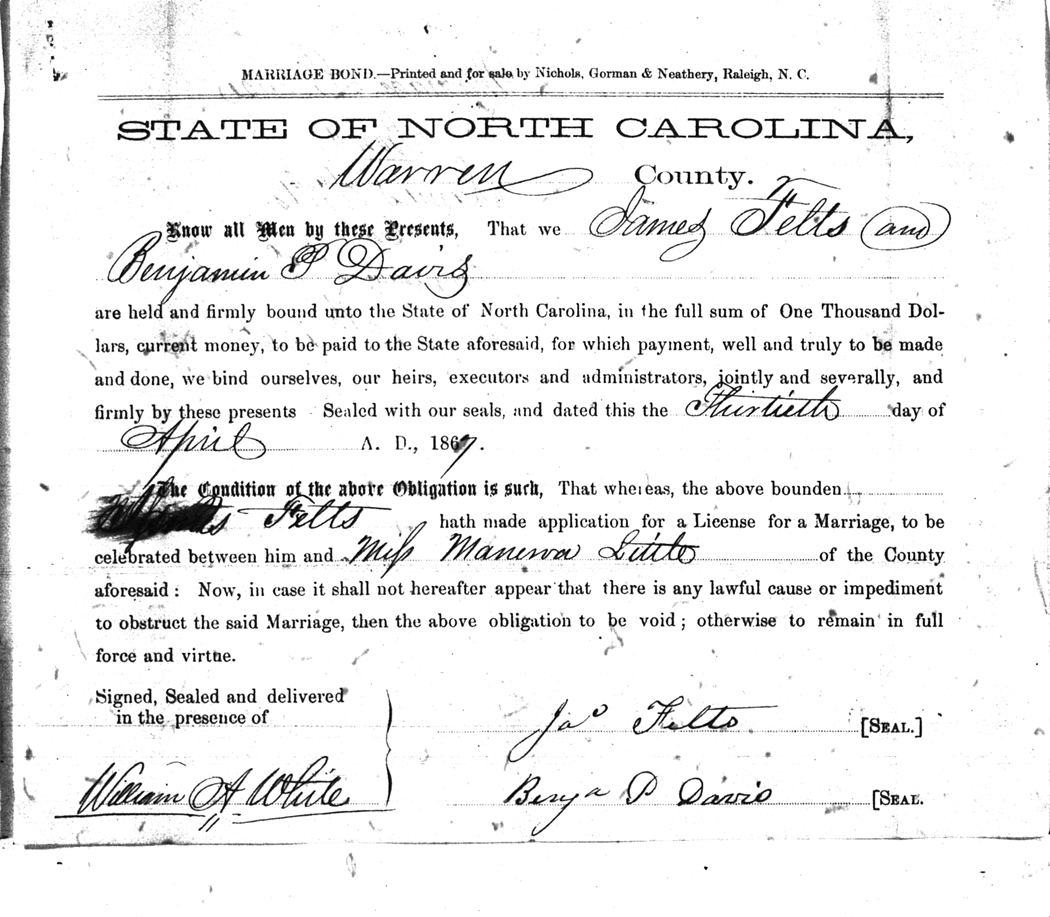 MARRIAGE BOND.—Printed and for sale by Nichols, Gorman & Neathery, Raleigh, N. C.
STATE OF NORTH CAROLINA,
Warren County.
Know all Men by these Presents, That we James Felts and
Benjamin P Davis
are held and firmly bound unto the State of North Carolina, in the full sum of One Thousand Dol-
lars, current money, to be paid to the State aforesaid, for which payment, well and truly to be made
and done, we bind ourselves, our heirs, executors and administrators, jointly and severally, and
firmly by these presents Sealed with our seals, and dated this the Thirtieth day of
April A. D., 1867.
The Condition of the above Obligation is such, That whereas, the above bounden
Felts hath made application for a License for a Marriage, to be
celebrated between him and Miss Manerva Little of the County
aforesaid : Now, in case it shall not hereafter appear that there is any lawful cause or impediment
to obstruct the said Marriage, then the above obligation to be void ; otherwise to remain in full
force and virtue.
Signed, Sealed and delivered
in the presence of
Jas Felts [SEAL.]
William A White
Benja P Davis [SEAL.